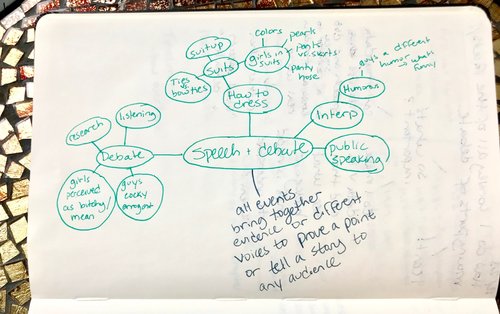 colors
pearls
pants
vs. skirts
panty
hose
girls in
suits
suitup
suits
Ties
vs
bowties
How to
dress
guys a different
humor → what's
funny
Humorous
Interp
research
listening
Debate
Speech + debate
public
speaking
girls
perceived
as bitchy/
mean
guys
cocky
arrogant
all events
bring together
evidence or different
voices to prove a point
or tell a story to
any audience